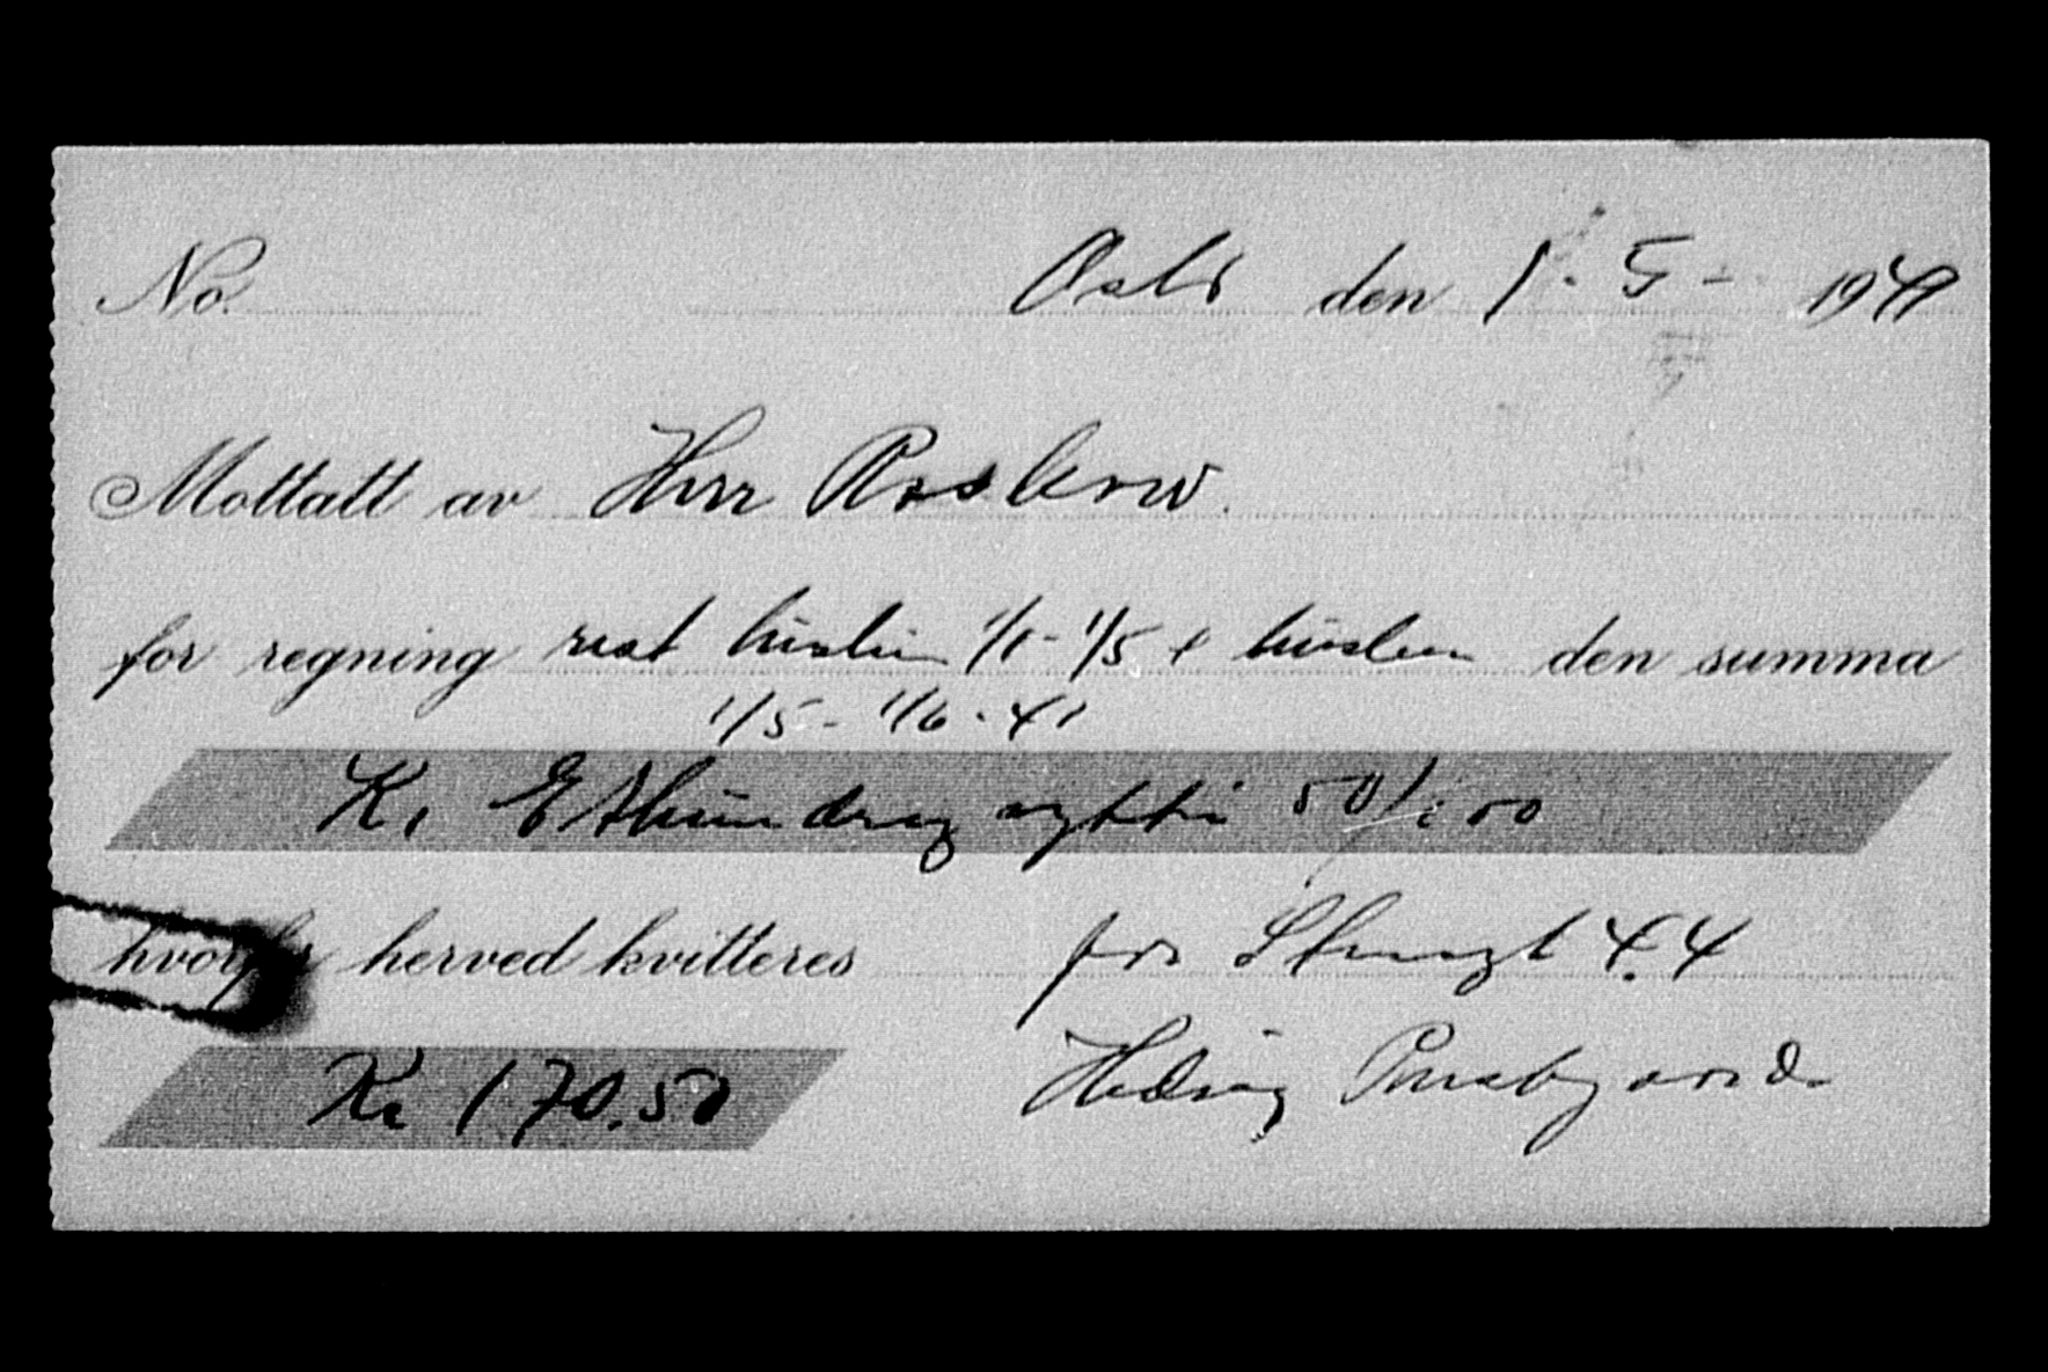 No. Oslo den 1. 5 - 1941
Mottatt av Herr Roskow.
for regning rest husleie 1/1 - 1/5 & husleie den summa
1/5 - 1/6 - 41
Kr Ethundreog sytti 50/100
hvorfor herved kvitteres for A.4
Kr 170.50 Hedvig